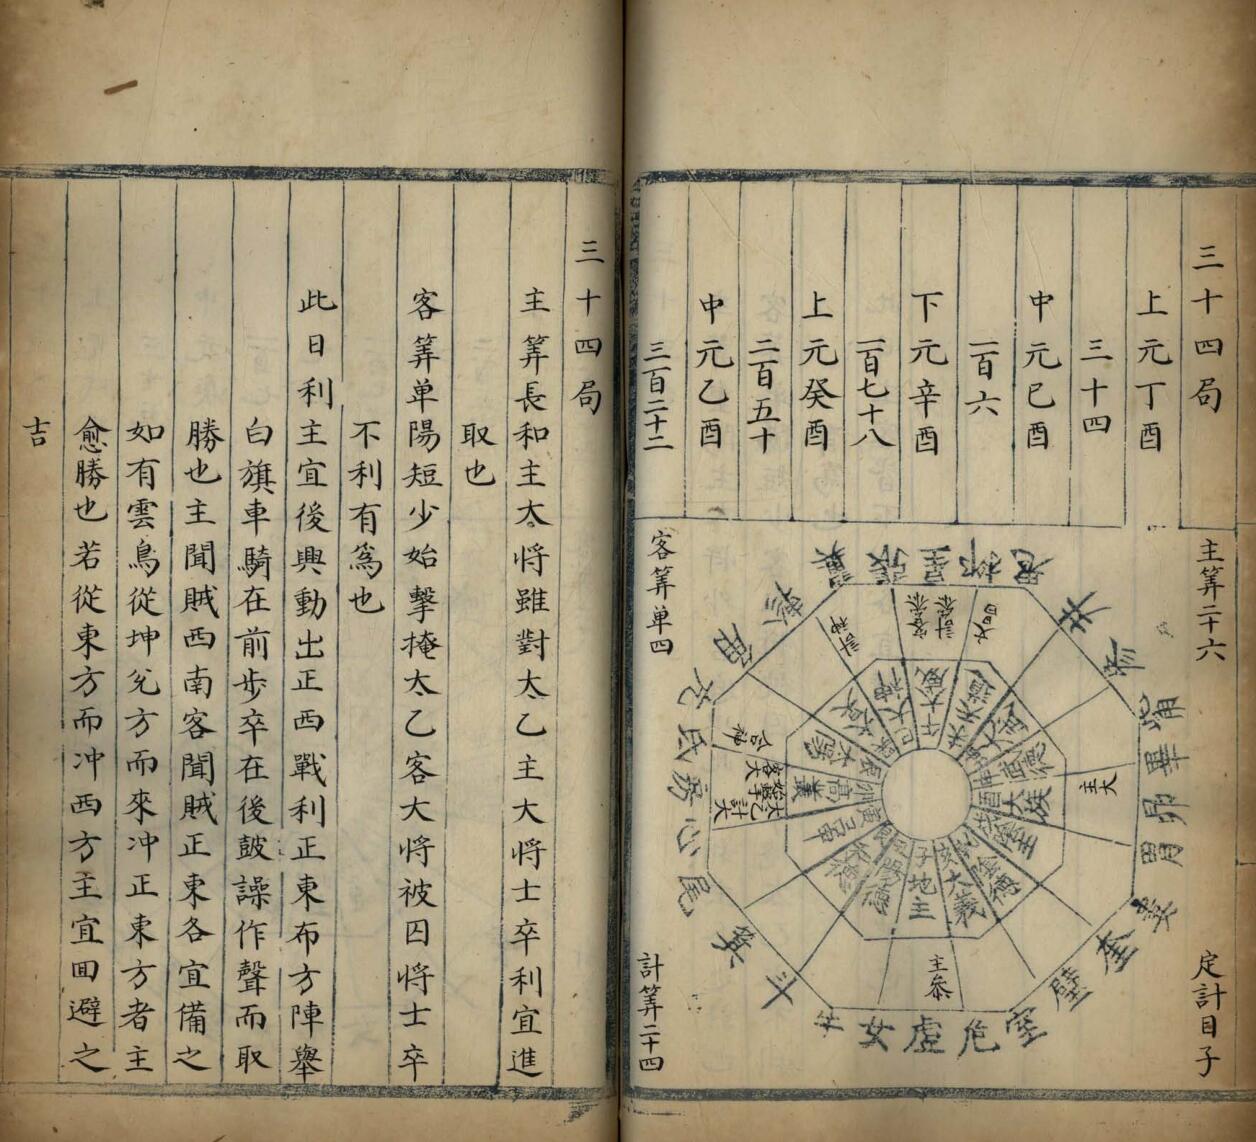 三十四局
上元丁酉
三十四
中元己酉
一百六
下元辛酉
一百七十八
上元癸酉
二百五十
中元乙酉
三百二十二
主筭二十六
定計目子
客筭单四
計筭二十四
鬼柳星張翼
井
参
觜畢昴胃
娄
奎
壁
室危虚女牛
斗
箕
尾心房氐亢
計神
客叅
計叅
文昌
主大
主叅
合神
太乙計大
午大威
巳大神
子地主
亥大義
三十四局
主筭長和主大将雖對太乙主大将士卒利宜進
取也
客筭单陽短少始擊掩太乙客大将被囚将士卒
不利有為也
此日利主宜後興動出正西戰利正東布方陣舉
白旗車騎在前步卒在後鼓譟作聲而取
勝也主聞賊西南客聞賊正東各宜備之
如有雲鳥從坤兌方而來冲正東方者主
愈勝也若從東方而冲西方主宜回避之
吉